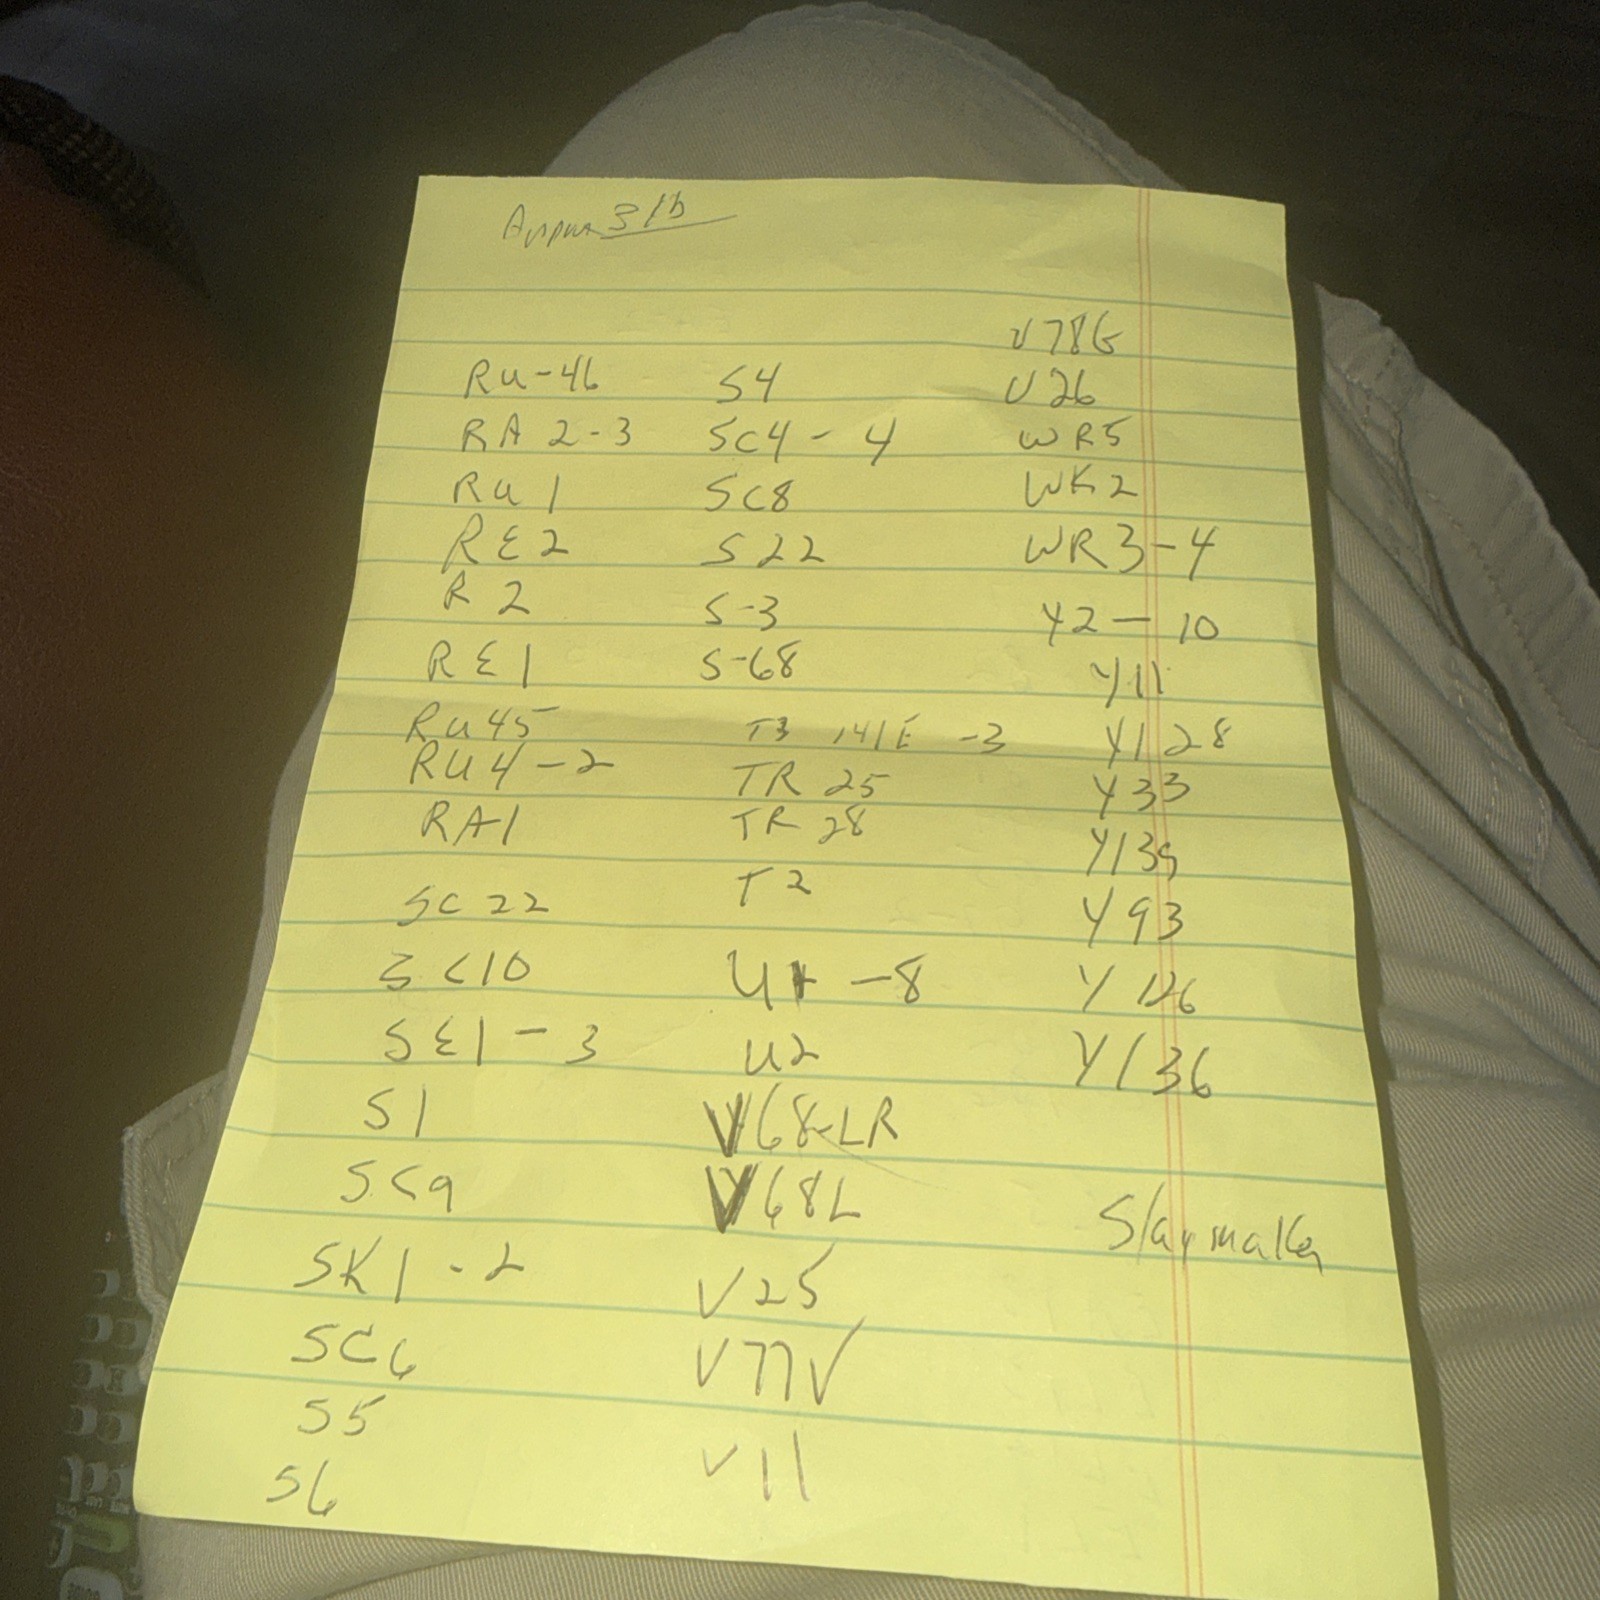 31b
Ru-46
RA 2-3
Ru 1
RE2
R 2
RE1
Ru45
RU4-2
RA1
SC 22
SC10
SE1-3
S1
SC9
SK1-2
SC6
S5
S6
S4
SC4-4
SC8
S22
S-3
S-68
T3 141E -3
TR 25
TR 28
T2
U1 -8
U2
V68-LR
V68L
V25
V77V
V11
V78G
V26
WR5
WK2
WR3-4
Y2-10
Y11
Y128
Y33
Y139
Y93
Y126
Y136
Slaymaker